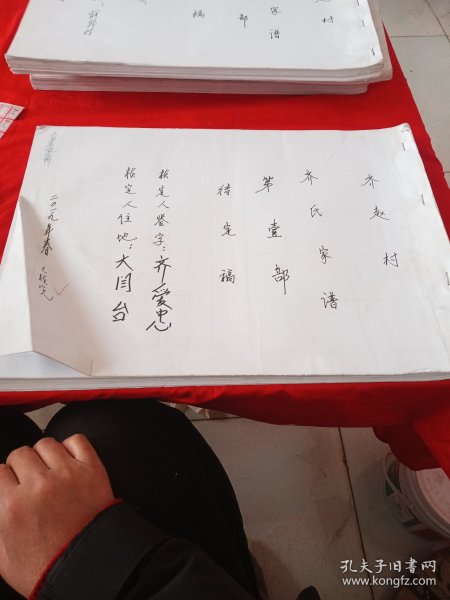 齐赵村
齐氏家谱
第壹部
待定稿
核定人签字：齐爱忠
核定人住地：大闫台
二〇一九年春
已核完
家谱
部
稿
村
孔夫子旧书网
www.kongfz.com